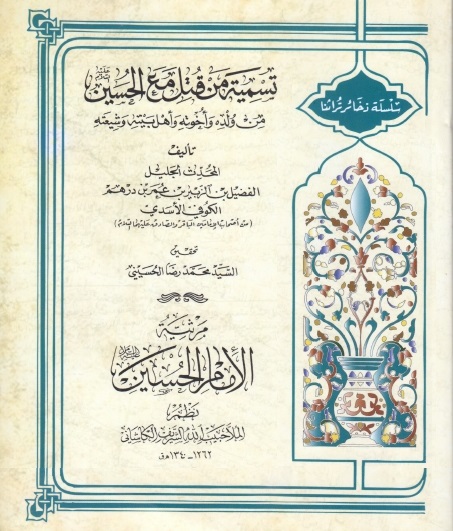 سلسلة ذخائر تراثنا
تسمية من قتل مع الحسين عليه السلام
من ولده وإخوته وأهل بيته وشيعته
تأليف
المحدث الجليل
الفضيل بن الزبير بن عمر بن درهم
الكوفي الأسدي
(من أصحاب الإمامين الباقر والصادق عليهما السلام)
تحقيق
السيد محمد رضا الحسيني
مرثية
الإمام الحسين عليه السلام
نظم
الملا حبيب الله الشريف الكاشاني
١٢٦٢ - ١٣٤٠ هـ ق